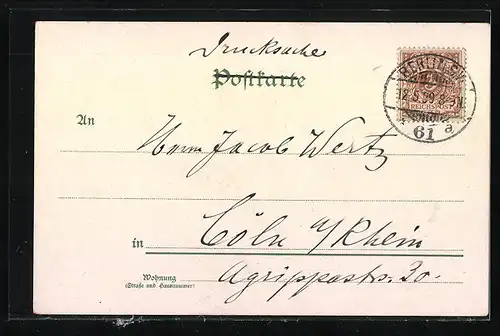 Drucksache
Postkarte
BERLIN S.W.
REICHSPOST
61 a
An
Herrn Jacob Wertz
in Cöln a/Rhein
Wohnung
(Straße und Hausnummer)
Agrippastr. 20.